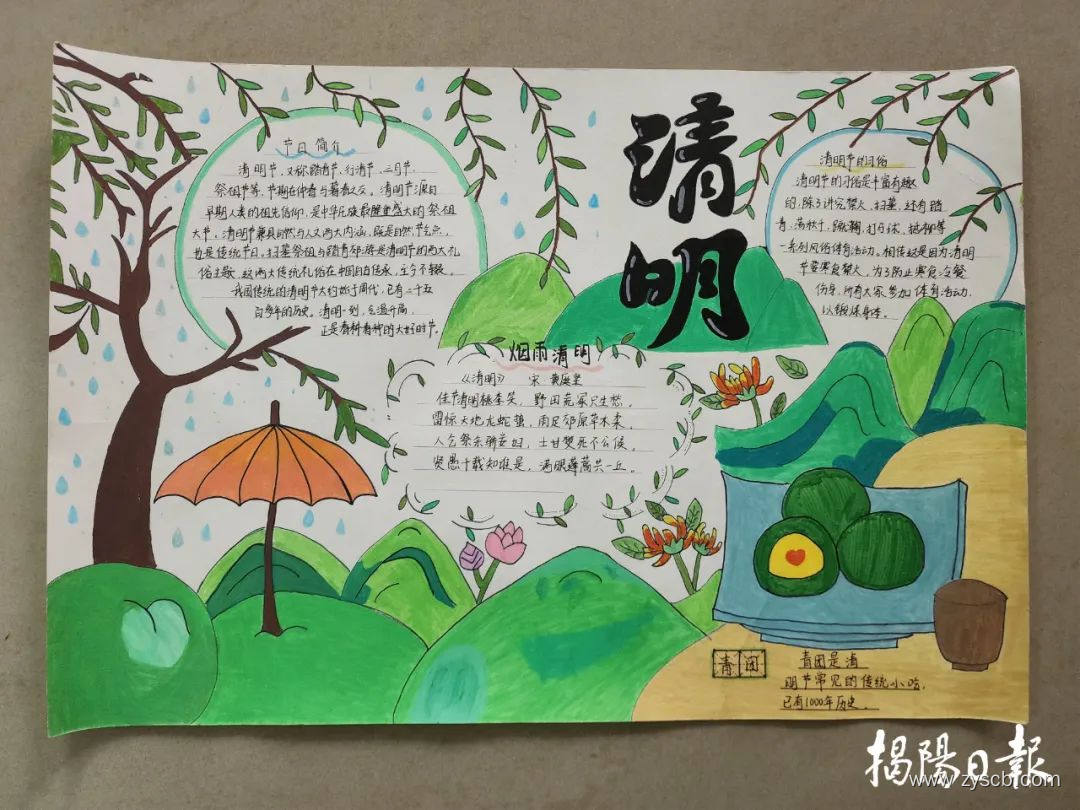 清明
节日简介
清明节,又称踏青节、行清节、三月节、
祭祖节等,节期在仲春与暮春之交。清明节源自
早期人类的祖先信仰,是中华民族最隆重盛大的祭祖
大节。清明节兼具自然与人文两大内涵,既是自然节气点,
也是传统节日,扫墓祭祖与踏青郊游是清明节的两大礼
俗主题,这两大传统礼俗在中国自古传承,至今不辍。
我国传统的清明节大约始于周代,已有二千五
百多年的历史。清明一到,气温升高,
正是春耕春种的大好时节。
清明节的习俗
清明节的习俗是丰富有趣
的,除了讲究禁火、扫墓,还有踏
青、荡秋千、蹴鞠、打马球、插柳等
一系列风俗体育活动。相传这是因为清明
节要寒食禁火,为了防止寒食冷餐
伤身,所有大家参加体育活动,
以锻炼身体。
烟雨清明
《清明》 宋·黄庭坚
佳节清明桃李笑,野田荒冢只生愁。
雷惊天地龙蛇蛰,雨足郊原草木柔。
人乞祭余骄妾妇,士甘焚死不公侯。
贤愚千载知谁是,满眼蓬蒿共一丘。
青团
青团是清
明节常见的传统小吃,
已有1000年历史。
揭陽日報
www.zyscb.com